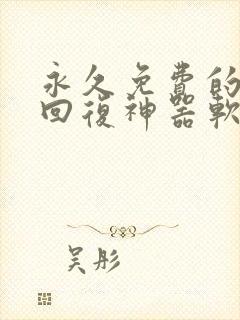 永久免費的
回復神器軟
吴彤